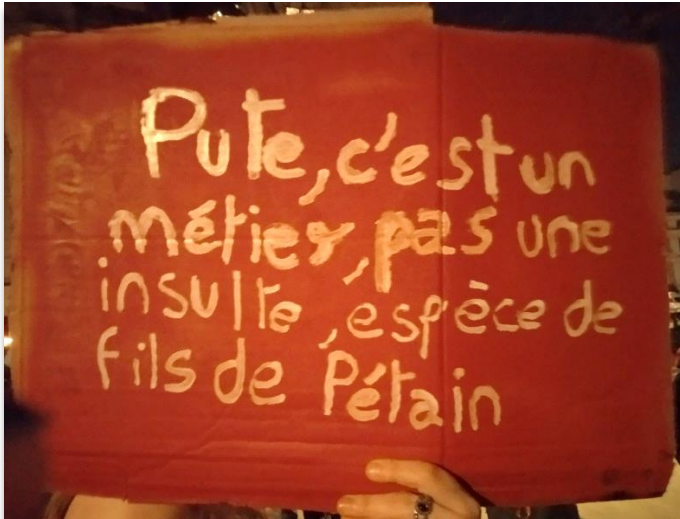 Pute, c'est un
métier, pas une
insulte, espèce de
fils de Pétain